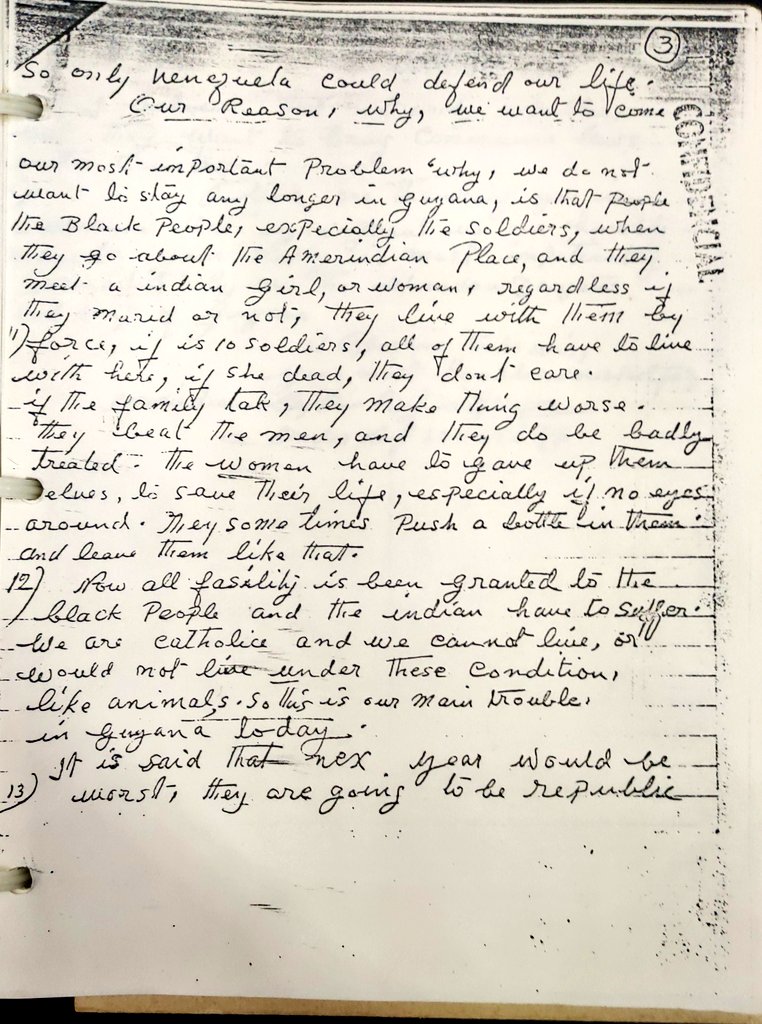 3
So only Venezuela could defend our life.
Our Reason, why, we want to come
CONFIDENCIAL
our most important Problem "why, we do not
want to stay any longer in guyana, is that people
the Black People, expecially the soldiers, when
they go about the Amerindian Place, and they
meet a indian girl, or woman, regardless if
they marid or not, they live with them by
11) force, if is 10 soldiers, all of them have to live
with here, if she dead, they dont care.
if the family talk, they make thing worse.
they beat the men, and they do be badly
treated. the women have to gave up them
selves, to save their life, especially if no eyes
around. They some times Push a bottle in them.
and leave them like that.
12) Now all fasility is been granted to the
black People and the indian have to suffer.
We are catholice and we cannot live, or
would not live under these condition,
like animals. So this is our main trouble,
in Guyana today.
It is said that nex year would be
13) worst, they are going to be republic